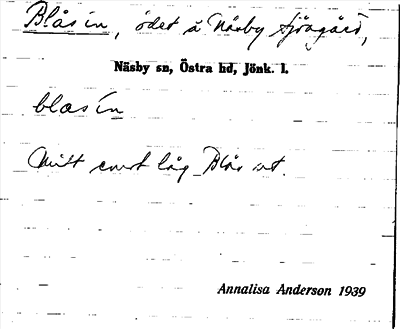 Blås in, ödet å Näsby Sjöagård,
Näsby sn, Östra hd, Jönk. l.
blas ín
Mitt emot låg Blås ut.
Annalisa Anderson 1939